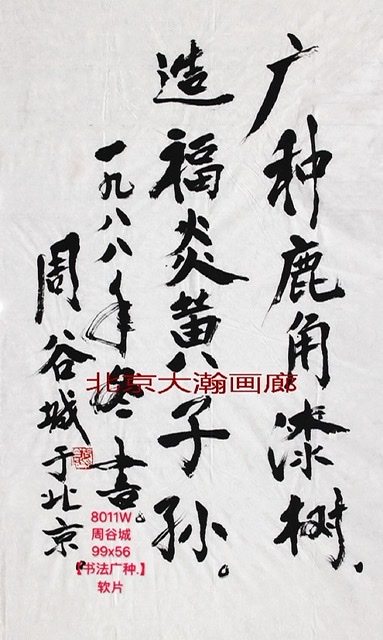 广种鹿角漆树.
造福炎黄子孙。
一九八八年冬书。
周谷城于北京。
北京大瀚画廊
8011W
周谷城
99x56
【书法广种.】
软片